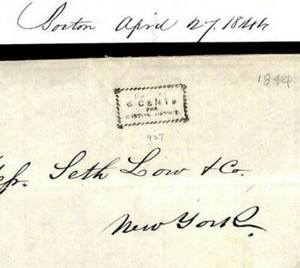 Boston April 27. 1844
1844
6 CENTS
FOR
BOSTON OFFICE
427
Messr. Seth Low & Co.
New York.